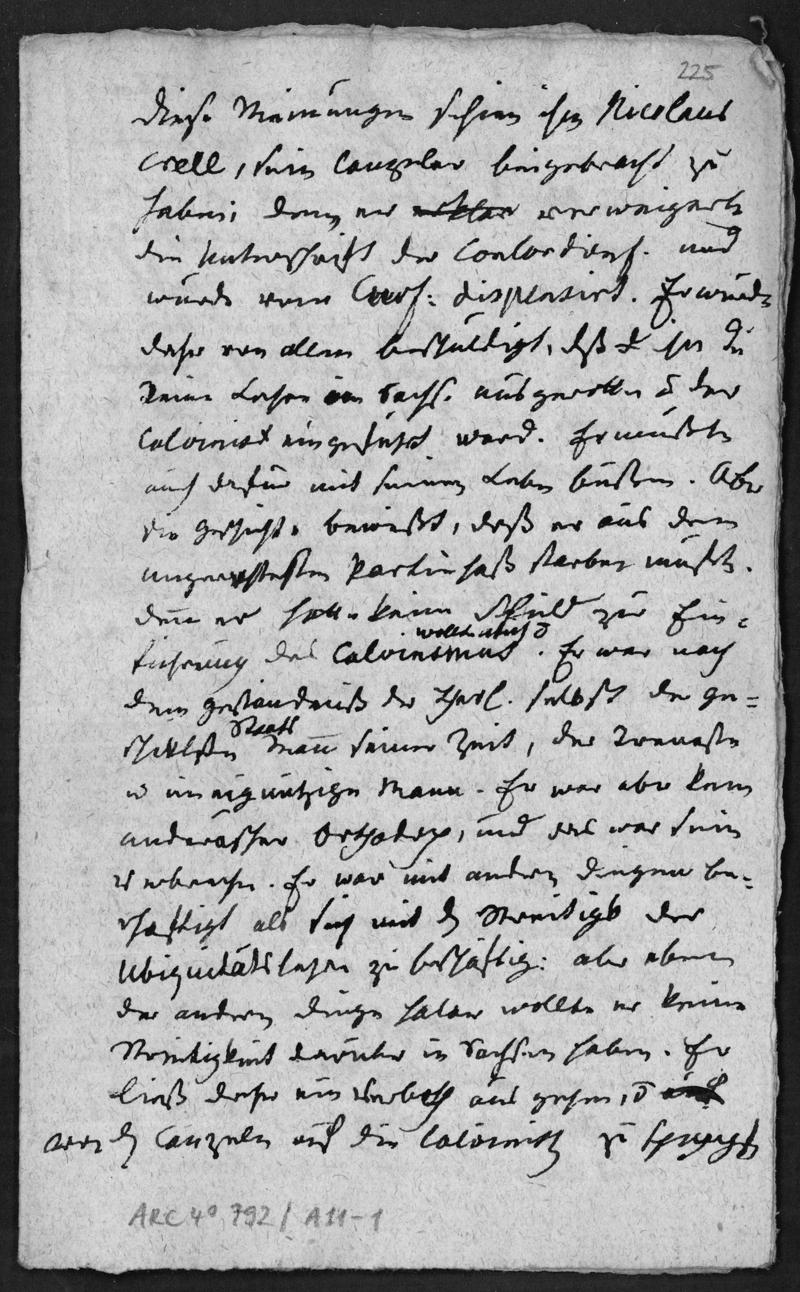 225
Diese Meinungen schien ihm Nicolaus
Crell, sein Canzler beigebracht zu
haben; denn er verweigerte
die Unterschrift der Concordienf. und
wurde vom Churf: dispensirt. Er wurde
daher von allen beschuldigt, daß ihm die
reine Lehre in Sachs. ausgerottet u der
Calvinist eingeführt werd. Er mußte
auch dafür mit seinem Leben büßen. Aber
die Geschicht. beweißt, daß er aus dem
ungerechtesten Partheihaß sterben mußte.
denn er hatte keine Schuld zur Ein-
führung des Calvinismus. Er war nach
dem Geständniß der selbst der ge-
schickteste Staats Mann seiner Zeit, der treueste
u uneigennützige Mann. Er war aber kein
Orthodox, und das war sein
Verbrechen. Er war mit andern Dingen be-
schäftigt als sich mit d Streitigk der
Ubiquitätslehre zu beschäftig: aber eben
der andern Dinge halber wollte er keine
Streitigkeit darüber in Sachsen haben. Er
ließ daher ein Verboth aus gehen,
von d Canzeln auf die Calvinist zu
ARC 4° 792 / A 11-1